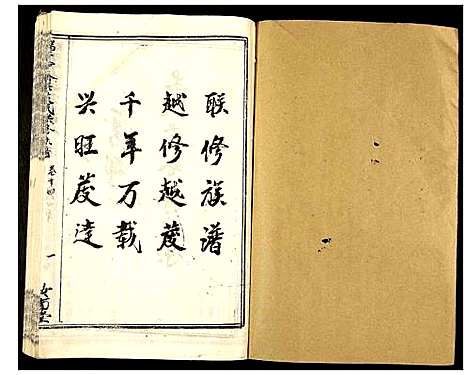 联修族谱
越修越茂
千年万载
兴旺发达
卷十四
一